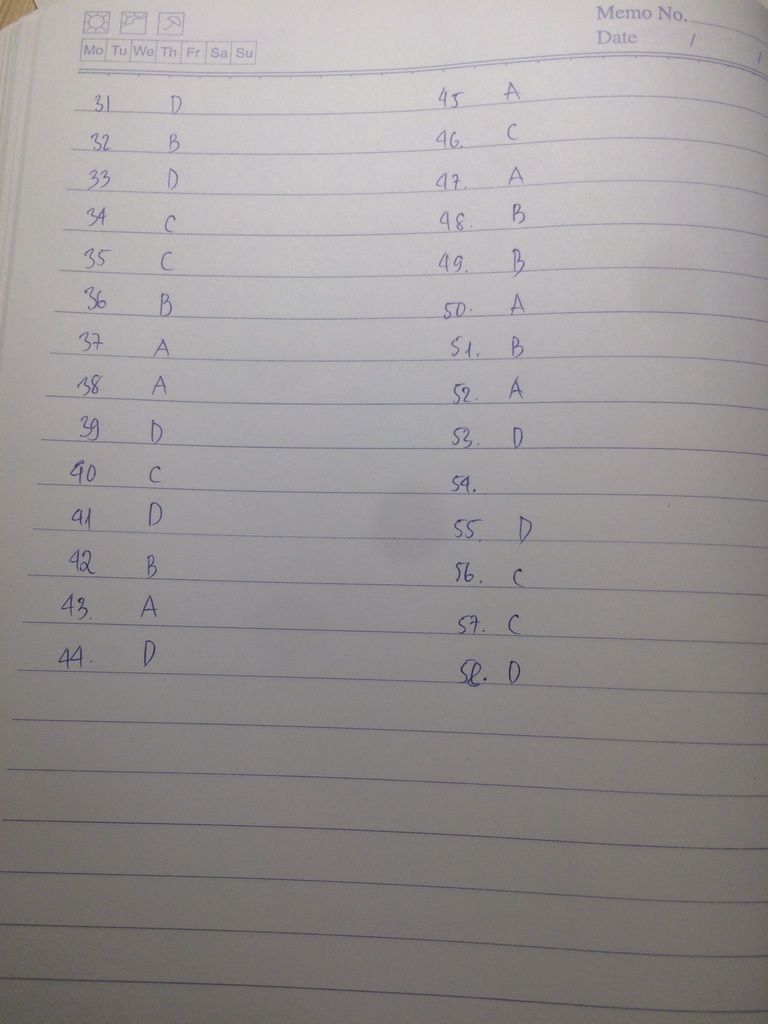 Memo No.
Mo Tu We Th Fr Sa Su
Date / /
31 D
32 B
33 D
34 C
35 C
36 B
37 A
38 A
39 D
40 C
41 D
42 B
43. A
44. D
45 A
46. C
47. A
48. B
49. B
50. A
51. B
52. A
53. D
54.
55. D
56. C
57. C
58. D